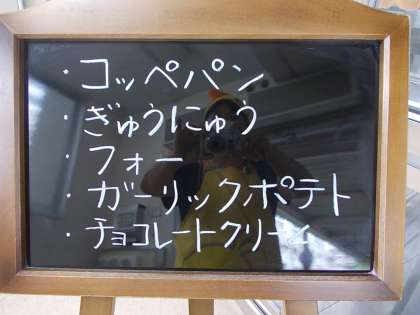 ・コッペパン
・ぎゅうにゅう
・フォー
・ガーリックポテト
・チョコレートクリーム